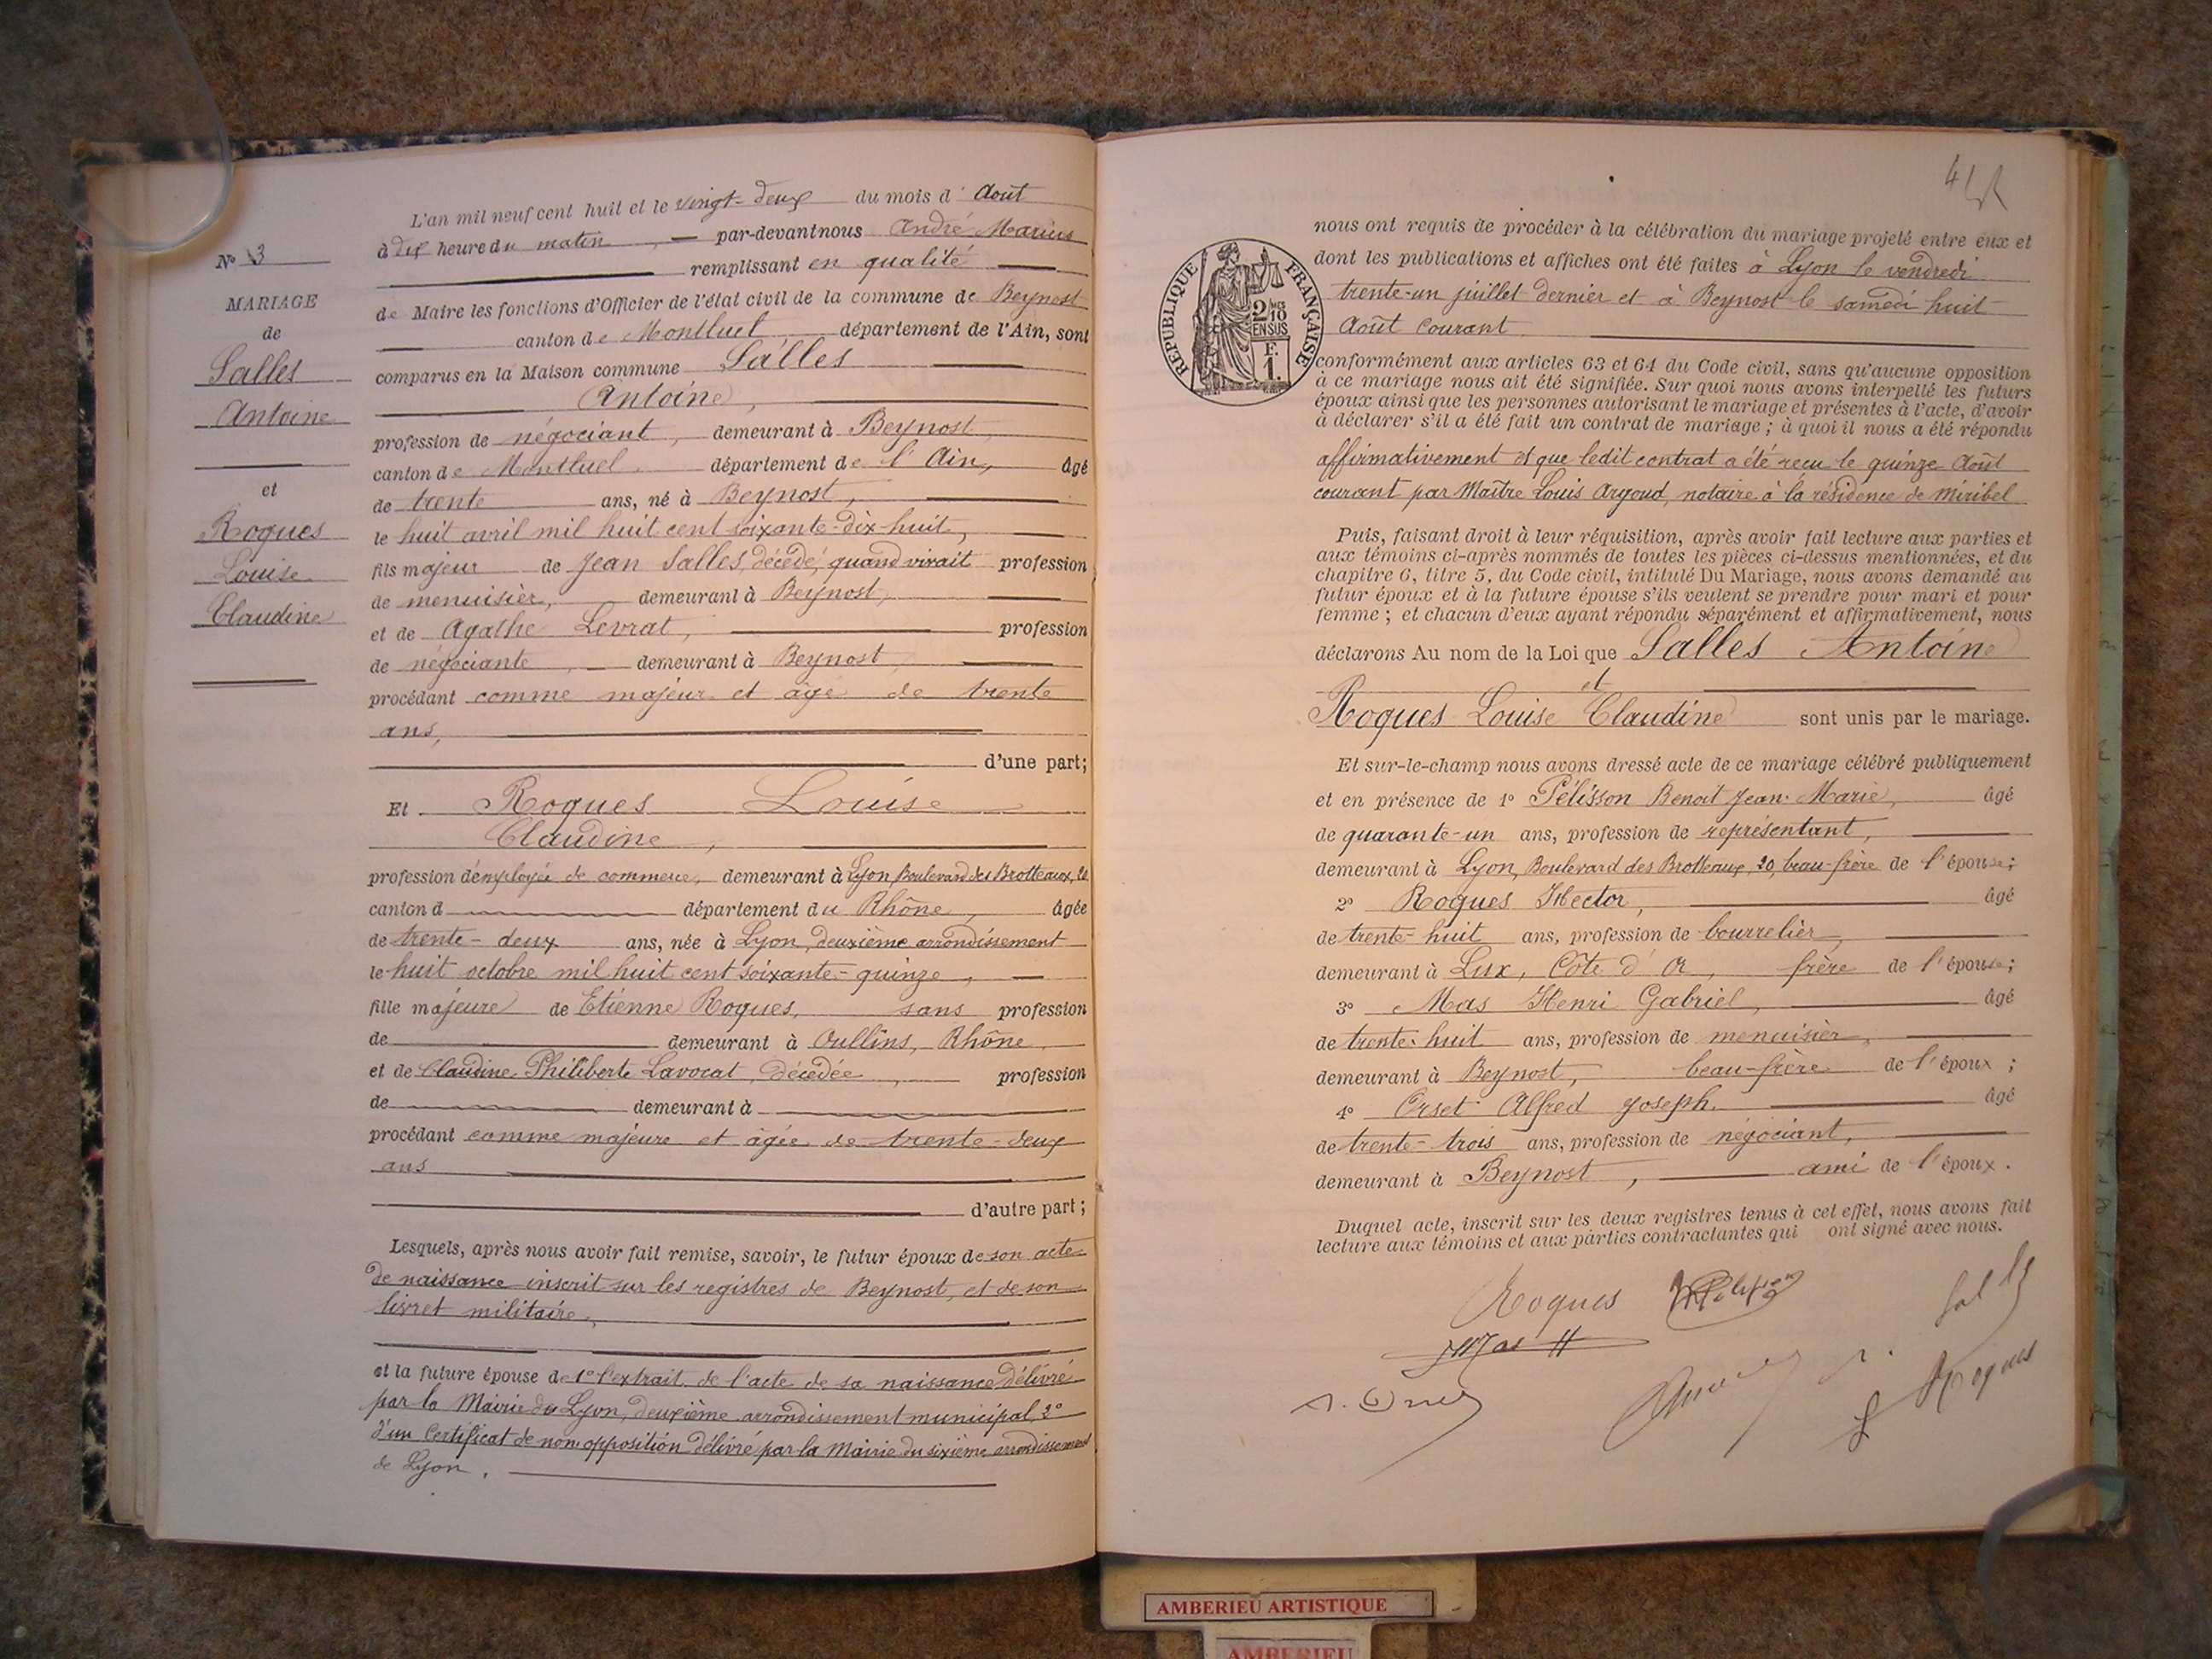 L'an mil neuf cent huit et le vingt-deux du mois d' Août
à dix heure du matin, par-devant nous André Marius
remplissant en qualité
de Maire les fonctions d'Officier de l'état civil de la commune de Beynost
canton de Montluel, département de l'Ain, sont
comparus en la Maison commune Salles
Antoine,
profession de négociant, demeurant à Beynost
canton de Montluel département de l'Ain, âgé
de trente ans, né à Beynost,
le huit avril mil huit cent soixante-dix-huit,
fils majeur de Jean Salles, décédé, quand vivait profession
de menuisier, demeurant à Beynost,
et de Agathe Levrat, profession
de négociante, demeurant à Beynost,
procédant comme majeur et âgé de trente
ans,
d'une part;
Et Roques Louise
Claudine,
profession d'employée de commerce, demeurant à Lyon, Boulevard des Brotteaux, 20
canton d département du Rhône, âgée
de trente-deux ans, née à Lyon, deuxième arrondissement
le huit octobre mil huit cent soixante-quinze,
fille majeure de Etienne Roques, sans profession
de demeurant à Oullins, Rhône,
et de Claudine Philiberte Lavocat, décédée, profession
de demeurant à
procédant comme majeure et âgée de trente-deux
ans
d'autre part;
Lesquels, après nous avoir fait remise, savoir, le futur époux de son acte
de naissance inscrit sur les registres de Beynost, et de son
livret militaire,
et la future épouse de 1° l'extrait de l'acte de sa naissance délivré
par la Mairie du Lyon, deuxième arrondissement municipal, 2°
d'un Certificat de non opposition délivré par la Mairie du sixième arrondissement
de Lyon.
N° 3
MARIAGE
de
Salles
Antoine
et
Roques
Louise
Claudine
RÉPUBLIQUE FRANÇAISE
2/10
EN SUS
F.
1.
nous ont requis de procéder à la célébration du mariage projeté entre eux et
dont les publications et affiches ont été faites à Lyon le vendredi
trente-un juillet dernier et à Beynost le samedi huit
Août courant
conformément aux articles 63 et 64 du Code civil, sans qu'aucune opposition
à ce mariage nous ait été signifiée. Sur quoi nous avons interpellé les futurs
époux ainsi que les personnes autorisant le mariage et présentes à l'acte, d'avoir
à déclarer s'il a été fait un contrat de mariage; à quoi il nous a été répondu
affirmativement et que ledit contrat a été reçu le quinze Août
courant par Maître Louis Argoud, notaire à la résidence de Miribel
Puis, faisant droit à leur réquisition, après avoir fait lecture aux parties et
aux témoins ci-après nommés de toutes les pièces ci-dessus mentionnées, et du
chapitre 6, titre 5, du Code civil, intitulé Du Mariage, nous avons demandé au
futur époux et à la future épouse s'ils veulent se prendre pour mari et pour
femme; et chacun d'eux ayant répondu séparément et affirmativement, nous
déclarons Au nom de la Loi que Salles Antoine
et
Roques Louise Claudine sont unis par le mariage.
Et sur-le-champ nous avons dressé acte de ce mariage célébré publiquement
et en présence de 1° Pélisson Benoit Jean-Marie, âgé
de quarante-un ans, profession de représentant,
demeurant à Lyon, Boulevard des Brotteaux, 20, beau-frère de l'épouse;
2° Roques Hector, âgé
de trente-huit ans, profession de bourrelier,
demeurant à Lux, Côte d'Or, frère de l'épouse;
3° Mas Henri Gabriel, âgé
de trente-huit ans, profession de menuisier,
demeurant à Beynost, beau-frère de l'époux;
4° Orset Alfred Joseph, âgé
de trente-trois ans, profession de négociant,
demeurant à Beynost, ami de l'époux.
Duquel acte, inscrit sur les deux registres tenus à cet effet, nous avons fait
lecture aux témoins et aux parties contractantes qui ont signé avec nous.
Roques
Salles
Mas H
L Roques
AMBERIEU ARTISTIQUE
AMBERIEU